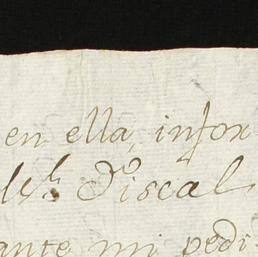 en ella, infor
del Sr. Fiscal
ante mi pedi